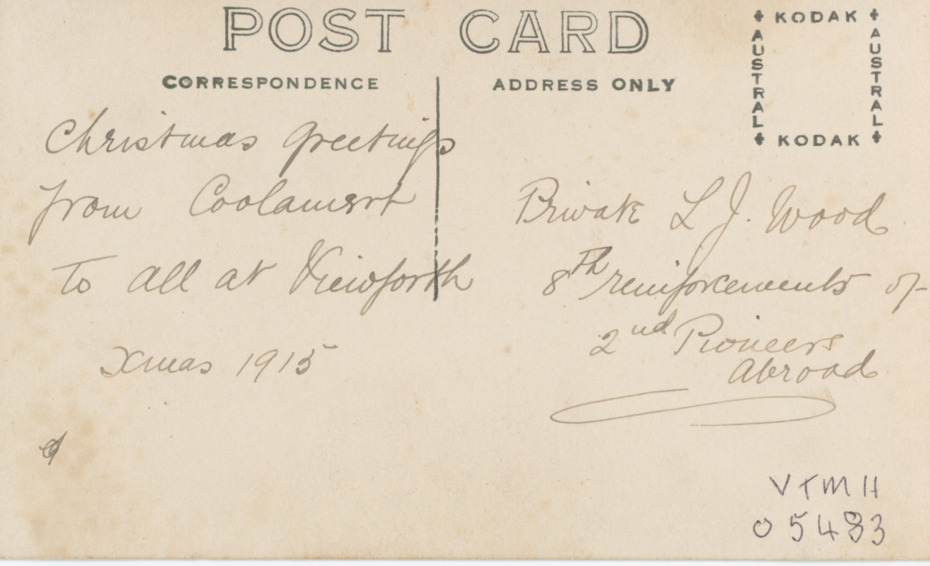 POST CARD
CORRESPONDENCE
ADDRESS ONLY
KODAK
AUSTRAL
AUSTRAL
KODAK
Christmas Greetings
from Coolamert
to all at Viewforth
Xmas 1915
Private L J. Wood
8th reinforcements of
2nd Pioneers
Abroad
VTMH
05483